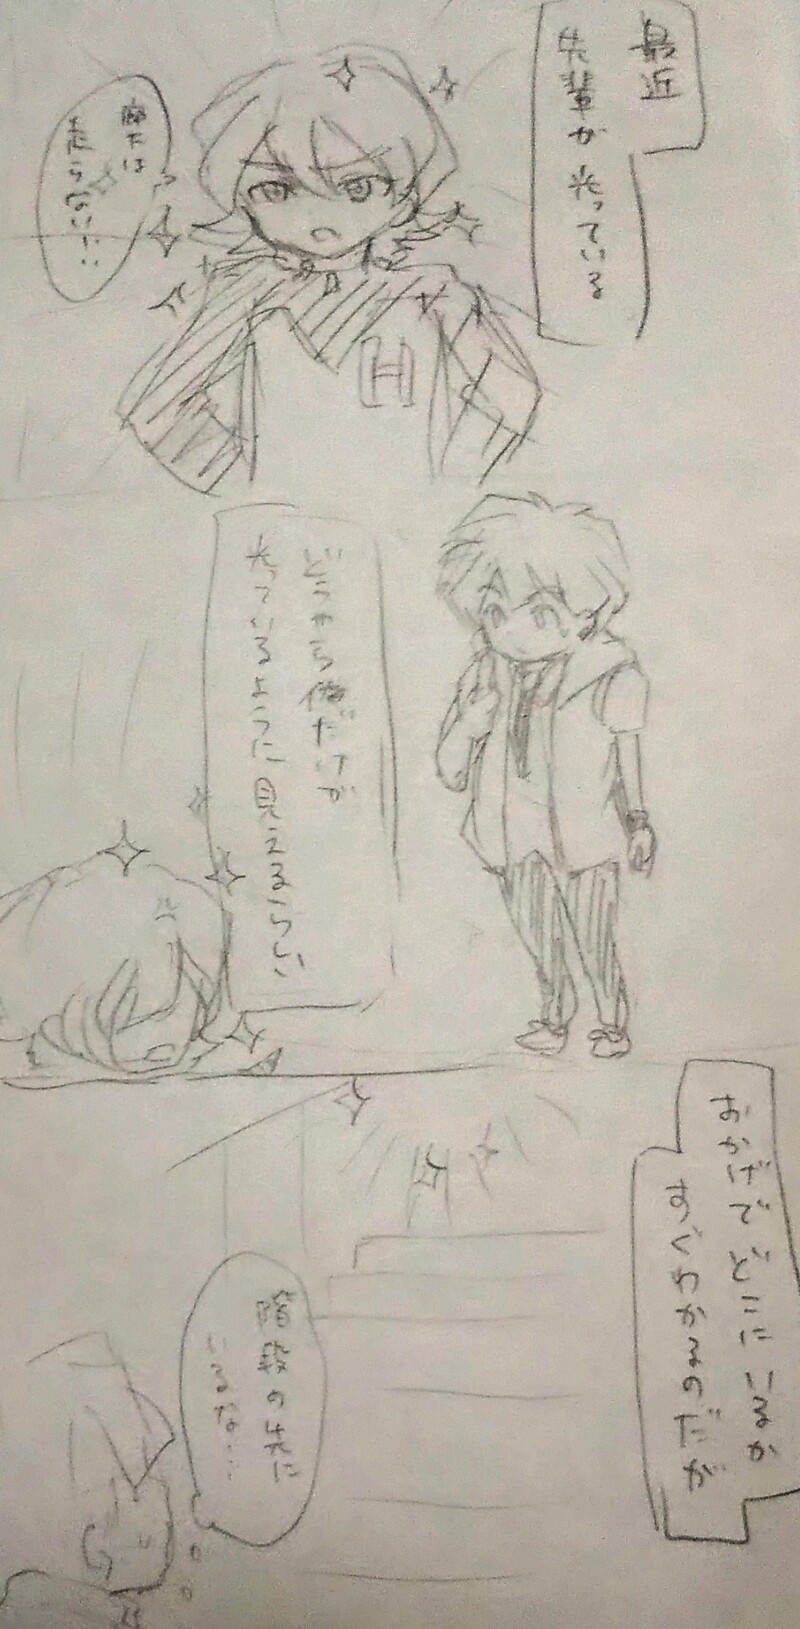 最近
先輩が光っている
廊下は
走らない…
H
どうやら俺だけが
光っているように見えるらしい
おかげでどこにいるか
すぐわかるのだが
階段の先に
いるな…